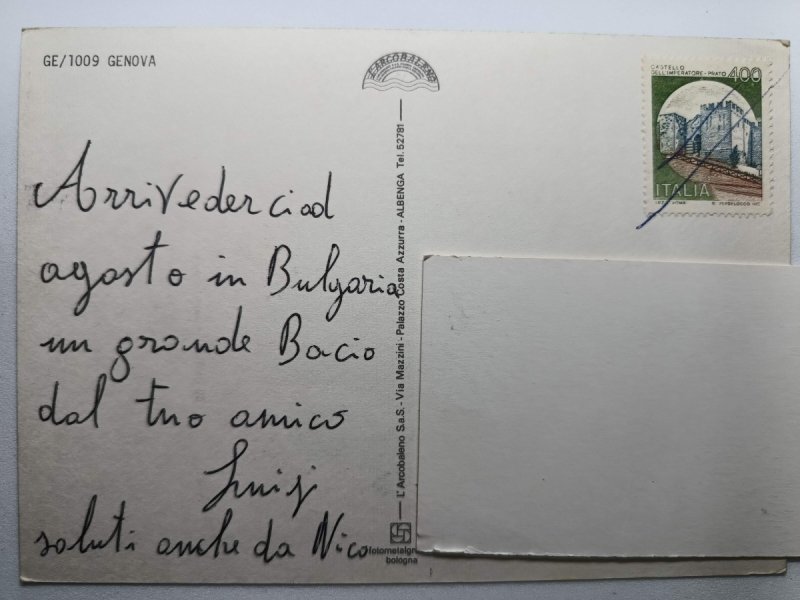 GE/1009 GENOVA
L'ARCOBALENO
CASTELLO
DELL'IMPERATORE - PRATO 400
ITALIA
Arrivederci ad
agosto in Bulgaria
un grande Bacio
dal tuo amico
Luigi
saluti anche da Nico
L'Arcobaleno S.a.S. - Via Mazzini - Palazzo Costa Azzurra - ALBENGA Tel. 52781 -
fotometalgr
bologna